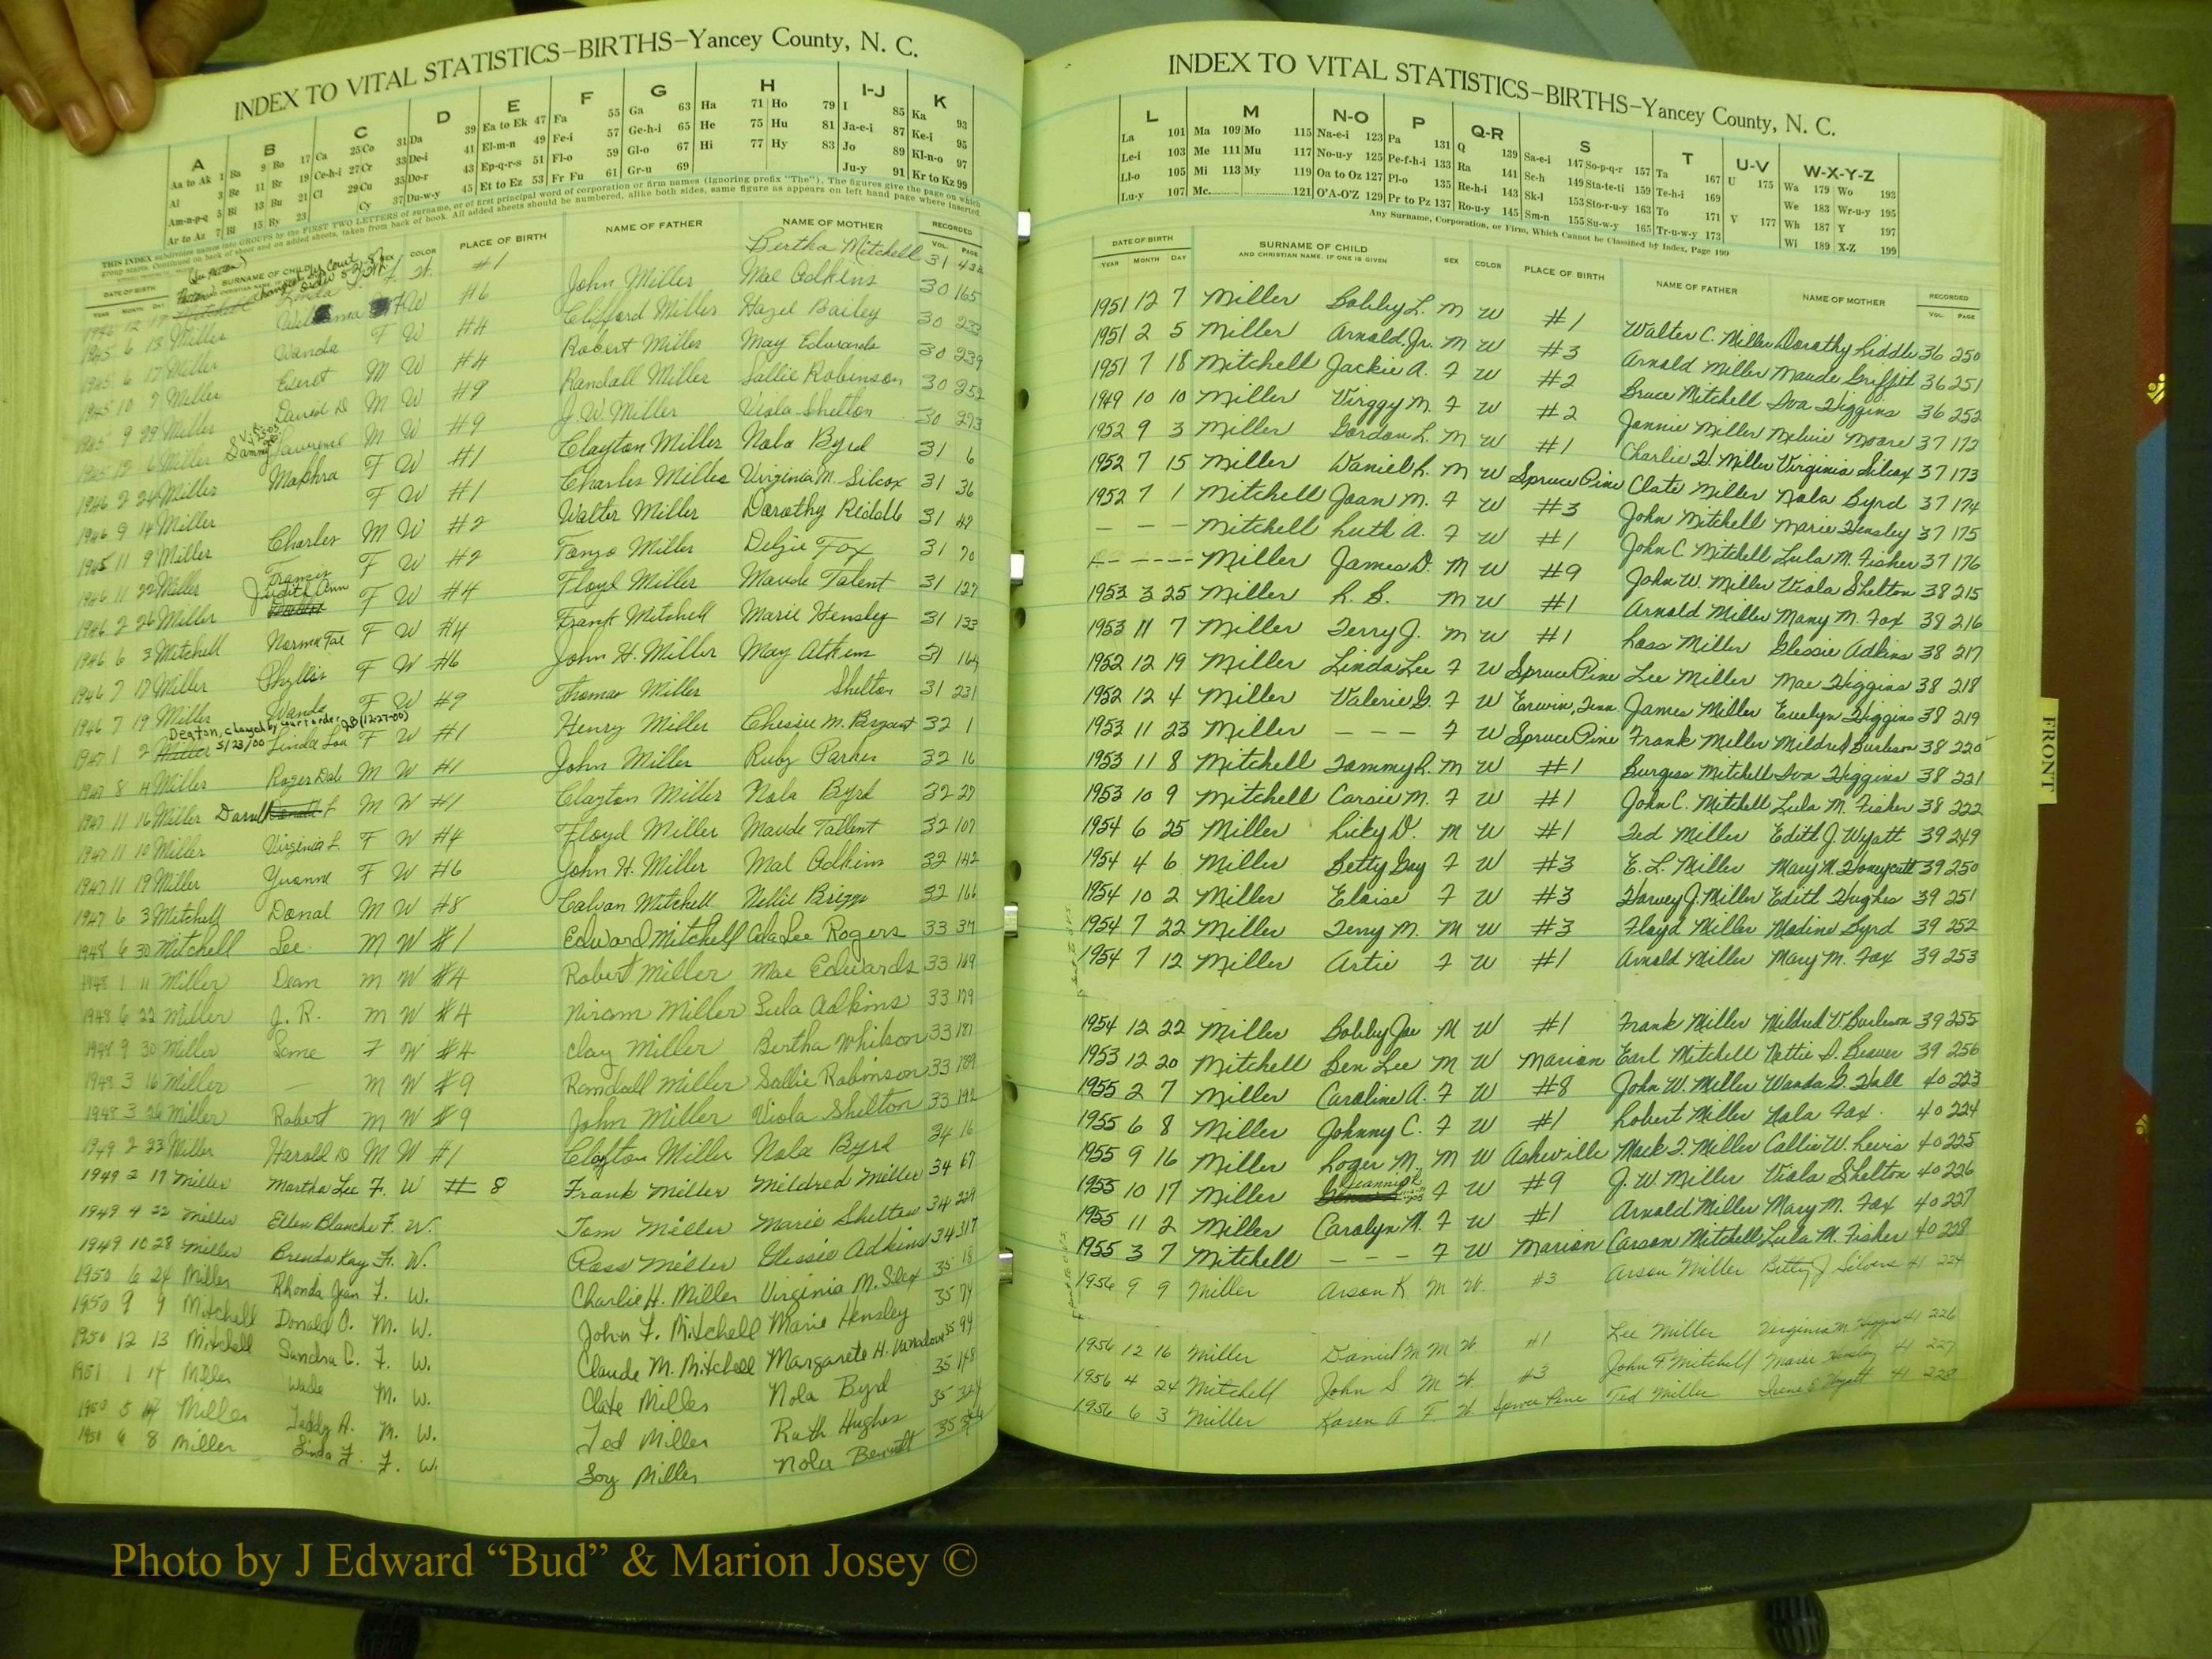 INDEX TO VITAL STATISTICS–BIRTHS–Yancey County, N. C.
A B C D E F G H I-J K
Aa to Ak 1 Ba 9 Bo 17 Ca 25 Co 31 Da 39 Ea to Ek 47 Fa 55 Ga 63 Ha 71 Ho 79 I 85 Ka 93
Al 3 Be 11 Br 19 Ce-h-i 27 Cr 33 De-i 41 El-m-n 49 Fe-i 57 Ge-h-i 65 He 75 Hu 81 Ja-e-i 87 Ke-i 95
Am-n-p-q 5 Bi 13 Bu 21 Cl 29 Cu 35 Do-r 43 Ep-q-r-s 51 Fl-o 59 Gl-o 67 Hi 77 Hy 83 Jo 89 Kl-n-o 97
Ar to Az 7 Bl 15 By 23 Cy 37 Du-w-y 45 Et to Ez 53 Fr Fu 61 Gr-u 69 Ju-y 91 Kr to Kz 99
DATE OF BIRTH SURNAME OF CHILD SEX COLOR PLACE OF BIRTH NAME OF FATHER NAME OF MOTHER RECORDED
YEAR MONTH DAY VOL. PAGE
#1 Bertha Mitchell 31
1945 6 13 Miller W #6 John Miller Mae Adkins 30 165
1945 6 17 Miller Wanda F W #4 Clifford Miller Hazel Bailey 30 233
1945 10 7 Miller Everet M W #4 Robert Miller May Edwards 30 239
1945 9 29 Miller David D M W #9 Randall Miller Sallie Robinson 30 252
Miller Sammy Lawrence M W #9 J. W. Miller Viola Shelton 30 273
1946 2 24 Miller Maphra F W #1 Clayton Miller Nola Byrd 31 6
1946 9 14 Miller F W #1 Charles Miller Virginia M. Silcox 31 36
1945 11 9 Miller Charles M W #2 Walter Miller Dorothy Riddle 31 42
1946 11 22 Miller Francis F W #2 Tonzo Miller Delzie Fox 31 70
1946 2 26 Miller Judith Ann F W #4 Floyd Miller Maude Talent 31 127
1946 6 3 Mitchell Norma Fae F W #4 Frank Mitchell Marie Hensley 31 133
1946 7 17 Miller Phyllis F W #6 John H. Miller May Atkins 31 164
1946 7 19 Miller Wanda F W #9 Thomas Miller Shelton 31 231
Deaton, changed by court order 5/23/00 (12-27-00)
1947 1 2 Miller Linda Lou F W #1 Henry Miller Chessie M. Bryant 32 1
1947 8 4 Miller Roger Dale M W #1 John Miller Ruby Parker 32 16
1947 11 16 Miller Darrell F M W #1 Clayton Miller Nola Byrd 32 27
1947 11 10 Miller Virginia L. F W #4 Floyd Miller Maude Tallent 32 107
1947 11 19 Miller Yvonne F W #6 John H. Miller Mae Adkins 32 142
1947 6 3 Mitchell Donal M W #8 Calvan Mitchell Nellie Briggs 32 166
1948 6 30 Mitchell Lee M W #1 Edward Mitchell Ada Lee Rogers 33 37
1948 1 11 Miller Dean M W #4 Robert Miller Mae Edwards 33 169
1948 6 22 Miller J. R. M W #4 Niram Miller Lula Adkins 33 179
1948 9 30 Miller Leme F W #4 Clay Miller Bertha Whitson 33 187
1948 3 16 Miller — M W #9 Randall Miller Sallie Robinson 33 189
1948 3 26 Miller Robert M W #9 John Miller Viola Shelton 33 192
1949 2 23 Miller Harold D M W #1 Clayton Miller Nola Byrd 34 16
1949 2 17 Miller Martha Lee F. W # 8 Frank Miller Mildred Miller 34 67
1949 4 22 Miller Ellen Blanche F. W. Tom Miller Marie Shelton 34 229
1949 10 28 Miller Brenda Kay F. W. Ross Miller Glessie Adkins 34 317
1950 6 24 Miller Rhonda Jean F. W. Charlie H. Miller Virginia M. Silcx 35 18
1950 9 9 Mitchell Donald O. M. W. John F. Mitchell Marie Hensley 35 74
1950 12 13 Mitchell Sandra C. F. W. Claude M. Mitchell Margarete H. 35 94
1951 1 14 Miller Wade M. W. Clate Miller Nola Byrd 35 148
1950 5 Miller Teddy A. M. W. Ted Miller Ruth Hughes 35 324
1950 6 8 Miller Linda F. F. W. Loy Miller Nola Bennett 35
INDEX TO VITAL STATISTICS–BIRTHS–Yancey County, N. C.
L M N-O P Q-R S T U-V W-X-Y-Z
La 101 Ma 109 Mo 115 Na-e-i 123 Pa 131 Q 139 Sa-e-i 147 So-p-q-r 157 Ta 167 U 175 Wa 179 Wo 193
Le-i 103 Me 111 Mu 117 No-u-y 125 Pe-f-h-i 133 Ra 141 Sc-h 149 Sta-te-ti 159 Te-h-i 169 We 183 Wr-u-y 195
Ll-o 105 Mi 113 My 119 Oa to Oz 127 Pl-o 135 Re-h-i 143 Sk-l 153 Sto-r-u-y 163 To 171 V 177 Wh 187 Y 197
Lu-y 107 Mc 121 O'A-O'Z 129 Pr to Pz 137 Ro-u-y 145 Sm-n 155 Su-w-y 165 Tr-u-w-y 173 Wi 189 X-Z 199
Any Surname, Corporation, or Firm, Which Cannot be Classified by Index, Page 199
DATE OF BIRTH SURNAME OF CHILD SEX COLOR PLACE OF BIRTH NAME OF FATHER NAME OF MOTHER RECORDED
YEAR MONTH DAY AND CHRISTIAN NAME, IF ONE IS GIVEN VOL. PAGE
1951 12 7 Miller Bobby L. M W #1 Walter C. Miller Dorothy Riddle 36 250
1951 2 5 Miller Arnold, Jr. M W #3 Arnold Miller Maude Griffit 36 251
1951 7 18 Mitchell Jackie A. F W #2 Bruce Mitchell Iva Higgins 36 252
1949 10 10 Miller Virggy M. F W #2 Jonnie Miller Melvie Moore 37 172
1952 9 3 Miller Gordon L. M W #1 Charlie H. Miller Virginia Silcox 37 173
1952 7 15 Miller Daniel R. M W Spruce Pine Clate Miller Nola Byrd 37 174
1952 7 1 Mitchell Joan M. F W #3 John Mitchell Marie Hensley 37 175
– – – Mitchell Ruth A. F W #1 John C. Mitchell Lula M. Fisher 37 176
– – – – Miller James D. M W #9 John W. Miller Viola Shelton 38 215
1953 3 25 Miller R. B. M W #1 Arnold Miller Mary M. Fox 38 216
1953 11 7 Miller Terry J. M W #1 Ross Miller Glessie Adkins 38 217
1952 12 19 Miller Linda Lee F W Spruce Pine Lee Miller Mae Higgins 38 218
1952 12 4 Miller Valerie G. F W Erwin, Tenn. James Miller Evelyn Higgins 38 219
1953 11 23 Miller – – – F W Spruce Pine Frank Miller Mildred Burleson 38 220
1953 11 8 Mitchell Tammy R. M W #1 Burgess Mitchell Iva Higgins 38 221
1953 10 9 Mitchell Carsie M. F W #1 John C. Mitchell Lula M. Fisher 38 222
1954 6 25 Miller Ricky D. M W #1 Ted Miller Edith J. Wyatt 39 249
1954 4 6 Miller Betty Gay F W #3 E. L. Miller Mary M. Honeycutt 39 250
1954 10 2 Miller Eloise F W #3 Harvey J. Miller Edith Hughes 39 251
1954 7 22 Miller Terry M. M W #3 Floyd Miller Madine Byrd 39 252
1954 7 12 Miller Artie F W #1 Arnold Miller Mary M. Fox 39 253
1954 12 22 Miller Bobby Joe M W #1 Frank Miller Mildred V. Burleson 39 255
1953 12 20 Mitchell Ben Lee M W Marion Earl Mitchell Nettie D. Beaver 39 256
1955 2 7 Miller Caroline A. F W #8 John W. Miller Wanda G. Hall 40 223
1955 6 8 Miller Johnny C. F W #1 Robert Miller Nola Fox. 40 224
1955 9 16 Miller Roger M. M W Asheville Mack T. Miller Callie W. Lewis 40 225
1955 10 17 Miller Jeannie F W #9 J. W. Miller Viola Shelton 40 226
1955 11 2 Miller Carolyn M. F W #1 Arnold Miller Mary M. Fox 40 227
1955 3 7 Mitchell – – – F W Marion Carson Mitchell Lula M. Fisher 40 228
1956 9 9 Miller Arson K. M W. #3 Arson Miller Betty J Silvers 41 224
1956 12 16 Miller Daniel M M W #1 Lee Miller Virginia M. Higgins 41 226
1956 4 24 Mitchell John S M W. #3 John F Mitchell Marie Hensley 41 227
1956 6 3 Miller Karen A F W. Spruce Pine Ted Miller Irene E Wyatt 41 228
FRONT
Photo by J Edward “Bud” & Marion Josey ©